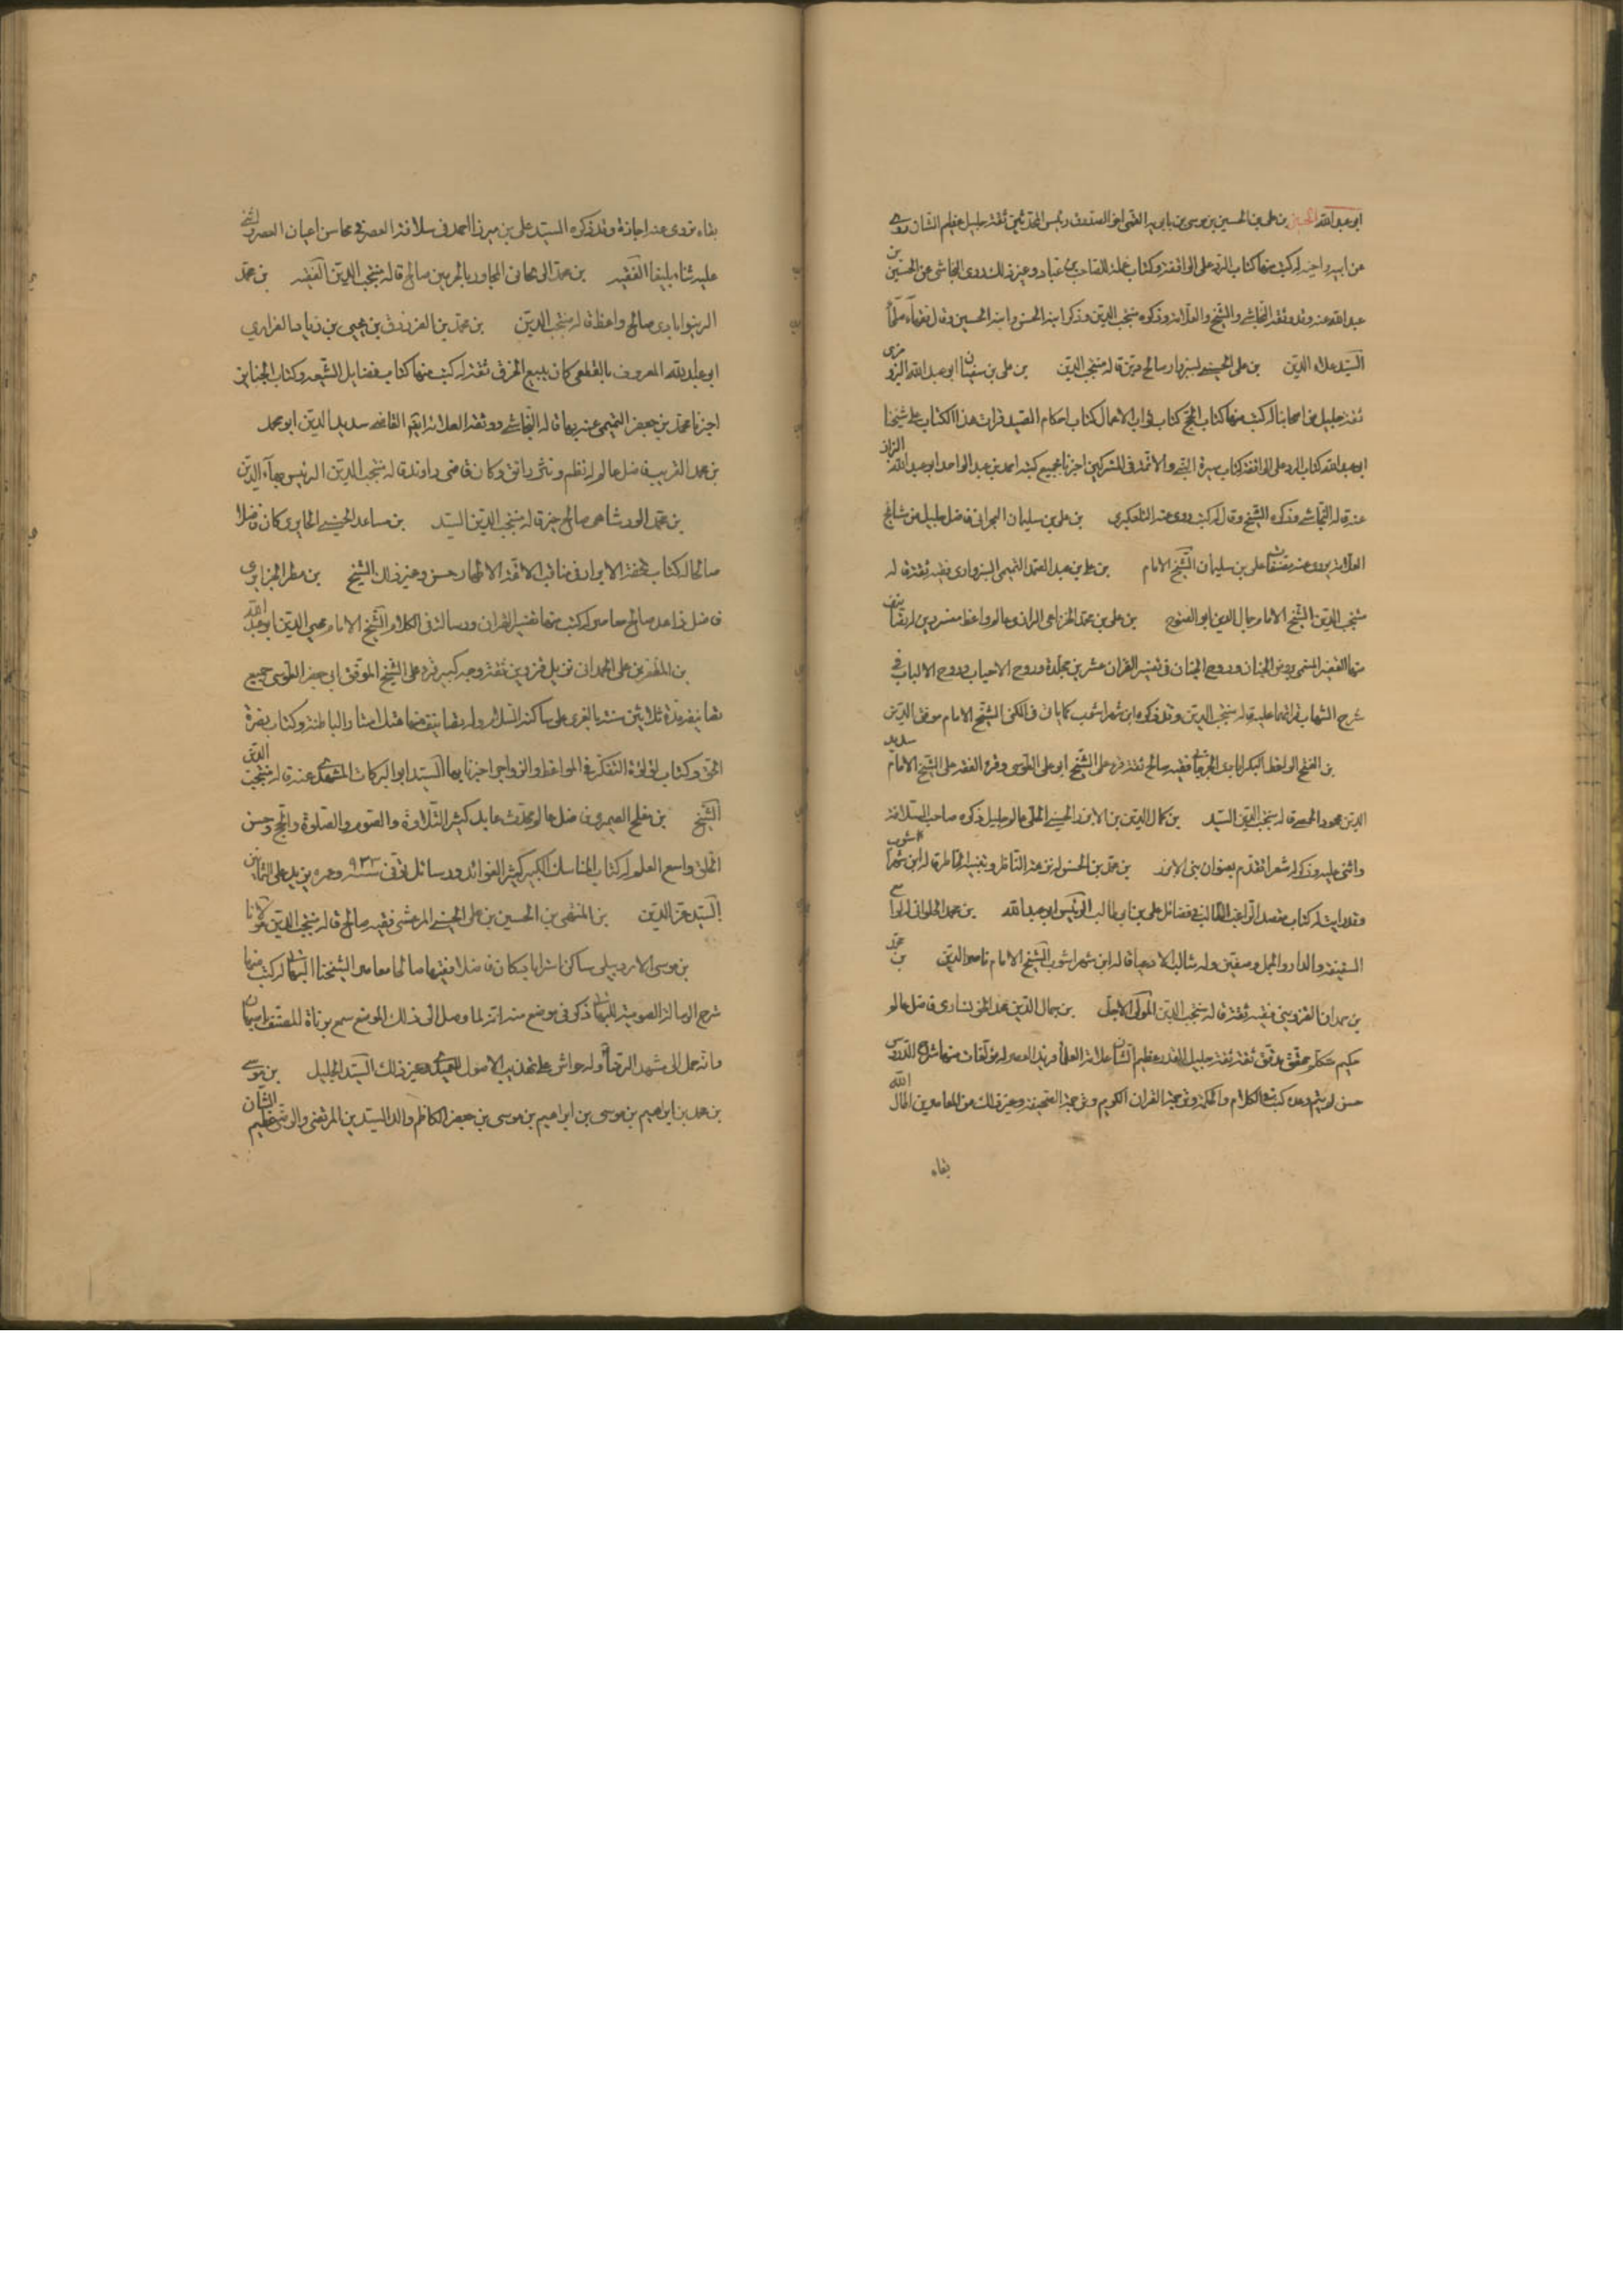 ابو عبد الله الحسين بن علي بن الحسين بن موسى بن بابويه القمي اخو الصدوق رئيس المحدثين ثقة جليل عظيم الشان روى
عن ابيه واخيه له كتب منها كتاب الرد على الواقفة وكتاب عمله للصاحب بن عباد وغير ذلك روى النجاشي عن الحسين بن
عبد الله عنه وقد وثقه النجاشي والشيخ والعلامة وذكره منتجب الدين وذكر ابنه الحسن وابنه الحسين وقال فقهاء صلحاء
السيد علاء الدين بن علي الحسيني بسبزوار صالح دين قاله منتجب الدين بن علي بن سفيان ابو عبد الله البزوفري
ثقة جليل من اصحابنا له كتب منها كتاب الحج كتاب ثواب الاعمال كتاب احكام العبيد قرات هذا الكتاب على شيخنا
ابو عبد الله كتاب الرد على الواقفة كتاب سيرة النبي والائمة في المشركين اخبرنا بجميع كتبه احمد بن عبد الواحد ابو عبد الله البزاز
عنه قاله النجاشي وذكره الشيخ وقال له كتب روى عنه التلعكبري بن علي بن سليمان البحراني فاضل جليل من مشايخ
العلامة يروي عنه مصنفات علي بن سليمان الشيخ الامام بن علي بن عبد الصمد التميمي السبزواري فقيه ثقة قاله
منتجب الدين الشيخ الامام جمال الدين ابو الفتوح بن علي بن محمد الخزاعي الرازي عالم واعظ مفسر دين له تصانيف
منها التفسير المسمى روض الجنان وروح الجنان في تفسير القران عشرين مجلدة وروح الاحباب وروح الالباب في
شرح الشهاب قراتهما عليه قاله منتجب الدين وقد ذكره ابن شهراشوب كما ياتي في الكنى الشيخ الامام موفق الدين
بن الفتح الواعظ البكرابادي الجرجاني فقيه صالح ثقة قرء على الشيخ ابو علي الطوسي وقرء الفقه على الشيخ الامام سديد
الدين محمود الحمصي قاله منتجب الدين السيد بن كمال الدين بن الابزر الحسيني الحلي عالم جليل ذكره صاحب السلافة
واثنى عليه وذكر له شعرا تقدم بعنوان بني الابزر بن محمد بن الحسن له نزهة الناظر وتنبيه الخاطر قاله ابن شهراشوب
وقد رايت له كتاب مقصد الراغب الطالب في فضائل علي بن ابي طالب الرئيس ابو عبد الله بن محمد الحلواني له لواء
السقيفة والدار والجمل وصفين وله رسالة الادعياء قاله ابن شهراشوب الشيخ الامام ناصر الدين بن محمد
بن حمدان القزويني فقيه ثقة قاله منتجب الدين المولى الاجل بن جمال الدين محمد الخونساري فاضل عالم
حكيم متكلم محقق مدقق ثقة ثقة جليل القدر عظيم الشان علامة العلماء فريد العصر له مؤلفات منها شرح الدروس
حسن لم يتم وعدة كتب في الكلام والحكمة وترجمة القران الكريم وترجمة الصحيفة وغير ذلك من المعاصرين اطال الله
بقاه
بقاه نروي عنه اجازة وقد ذكره السيد علي بن ميرزا احمد في سلافة العصر في محاسن اعيان العصر واثنى
عليه ثناء بليغا الفقيه بن محمد الريحاني المجاور بالحرمين صالح قاله منتجب الدين الفقيه بن محمد
الرينوابادي صالح واعظ قاله منتجب الدين بن محمد بن الفرزدق بن بجير بن زياد الفزاري
ابو عبد الله المعروف بالقطعي كان يبيع الخرق ثقة له كتب منها كتاب فضايل الشيعة وكتاب الجنائز
اخبرنا محمد بن جعفر التميمي عنه بهما قاله النجاشي ووثقه العلامة ايضا القاضي سديد الدين ابو محمد
بن محمد القريب فاضل عالم له نظم ونثر رائق وكان قاضي راوند قاله منتجب الدين الرئيس بهاء الدين
بن محمد الورشاهي صالح خير قاله منتجب الدين السيد بن مساعد الحسيني الحايري كان فاضلا
صالحا له كتاب تحفة الابرار في مناقب الائمة الاطهار حسن وغير ذلك الشيخ بن مطر الجزايري
فاضل زاهد صالح معاصر له كتب منها تفسير القران ورسالة في الكلام الشيخ الامام محيي الدين ابو عبد الله
بن المظفر بن علي الحمداني نزيل قزوين ثقة وجه كبير قرء على الشيخ الموفق ابي جعفر الطوسي جميع
تصانيفه مدة ثلاثين سنة بالغري على ساكنه السلام وله تصانيف منها هتك استار الباطنية وكتاب نصرة
الحق وكتاب لؤلؤة التفكر في المواعظ والزواجر اخبرنا بها السيد ابو البركات المشهدي عنه قاله منتجب الدين
الشيخ بن مفلح الصيمري فاضل عالم محدث عابد كثير التلاوة والصوم والصلوة والحج حسن
الخلق واسع العلم له كتاب المناسك الكبير كثير الفوائد ورسائل توفي سنة ٩٣٣ وعمره يزيد على الثمانين
السيد عز الدين بن المنتهى بن الحسين بن علي الحسيني المرعشي فقيه صالح قاله منتجب الدين مولانا
بن موسى الاردبيلي ساكن استراباد كان فاضلا فقيها صالحا معاصر الشيخنا البهائي له كتب منها
شرح الرسالة الصومية للبهائي ذكر في موضع منه انه لما وصل الى ذلك الموضع سمع بوفاة المصنف باصبهان
وانه حمل الى مشهد الرضا وله حواش على تهذيب الاصول للعميدي وغير ذلك السيد الجليل بن موسى
بن محمد بن ابراهيم بن موسى بن ابراهيم بن موسى بن جعفر الكاظم والد السيدين المرتضى والرضي عظيم الشان